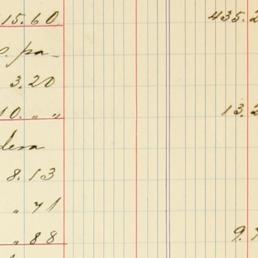 15.60 435.2
e. pa-
3.20
10. " " 13.2
dera
8.13
" 71
" 88 9.7